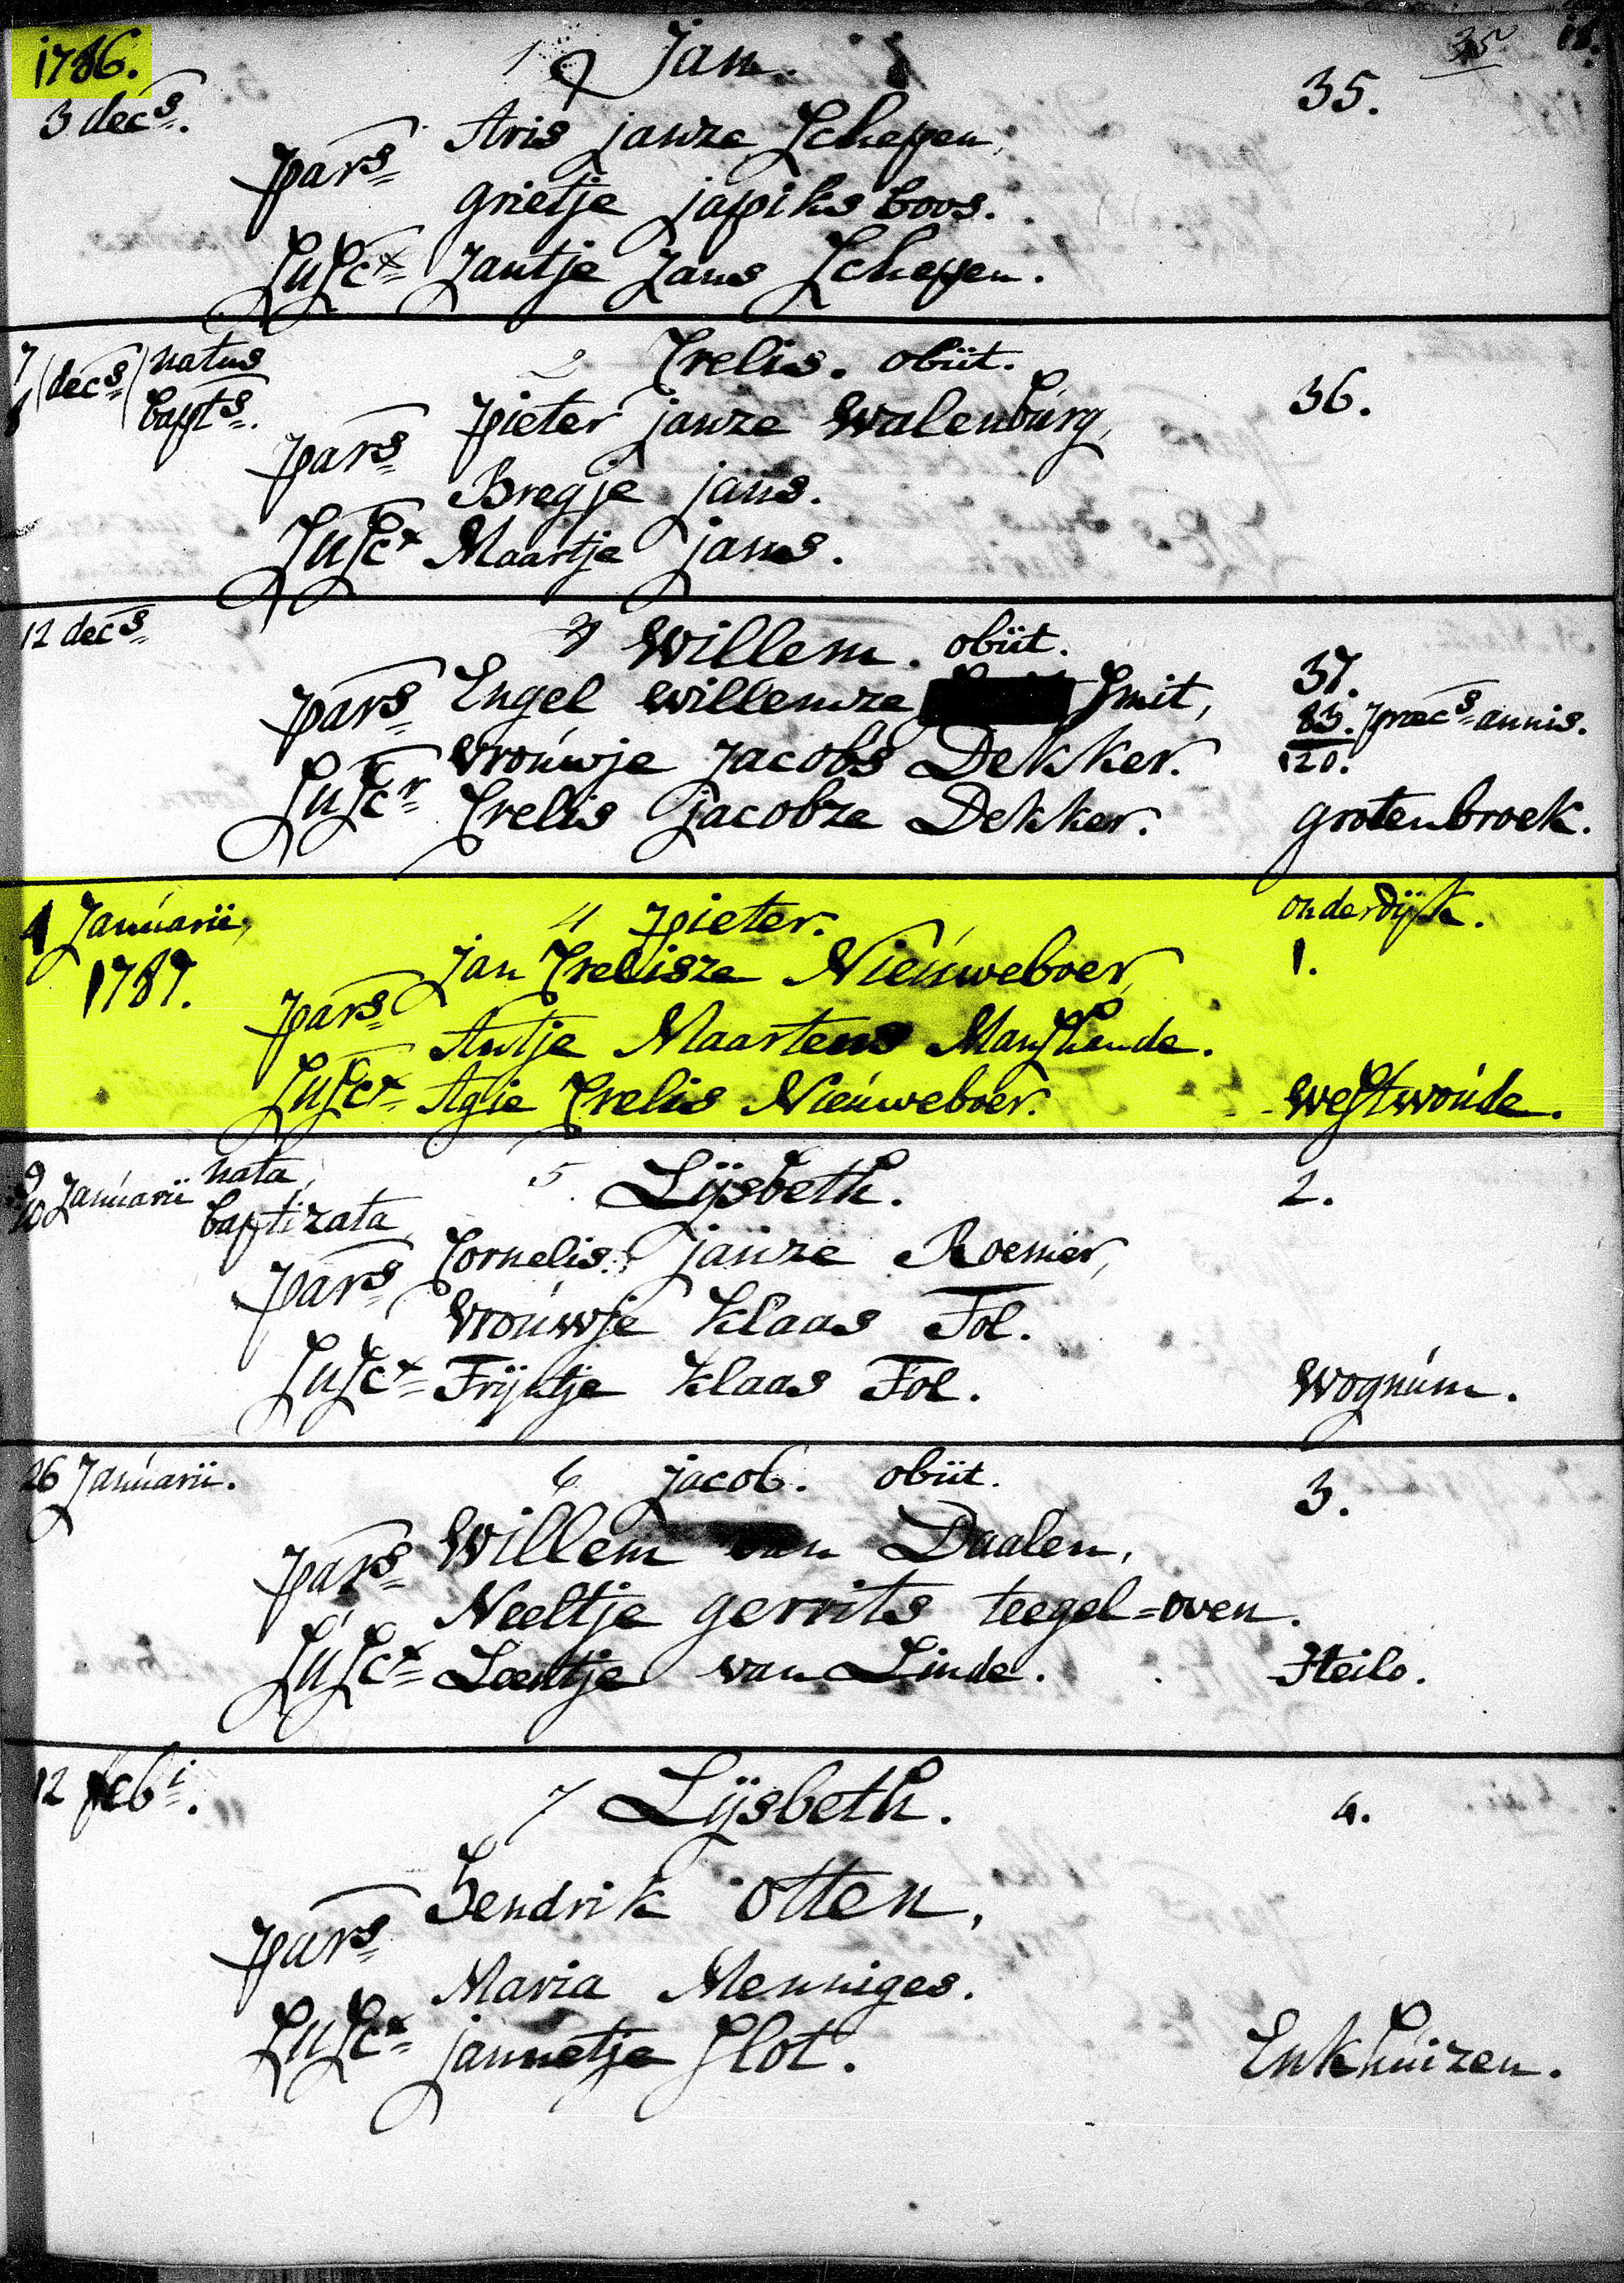 1786. 1 Jan. 35
3 decs. 35.
Aris janze Schepen,
pars
grietje japiks boos.
SuSc^x Jantje Jans Schepen.
7 natus 2 Crelis. obiit.
8 decs bapts. 36.
pieter janze Walenburg,
pars
Bregje jans.
SuSc^x Maartje jans.
12 decs 3 Willem. obiit.
37.
pars Engel willemze Smit,
83. præcs annis.
vrouwje Jacobs Dekker. 120.
SuSc^r Crelis jacobze Dekker. grotenbroek.
4 Januarii, 4 pieter. onderdijk.
1787. jan Crelisze Nieuweboer, 1.
pars
Antje Maartens Manshande.
SuSc^x Agie Crelis Nieuweboer. Westwoude.
9 nata, 5 Lijsbeth. 2.
10 Januarii baptizata
Cornelis janze Roemer,
pars
Vrouwje Klaas Fol.
SuSc^x Trijntje Klaas Fol. Wognum.
26 Januarii. 6 jacob. obiit. 3.
pars Willem van Daalen,
Neeltje gerrits teegel=oven.
SuSc^x Leentje van Linde. Heilo.
12 feb^i. 7 Lijsbeth. 4.
Hendrik otten,
pars
Maria Menniges.
SuSc^x jannetje Slot. Enkhuizen.